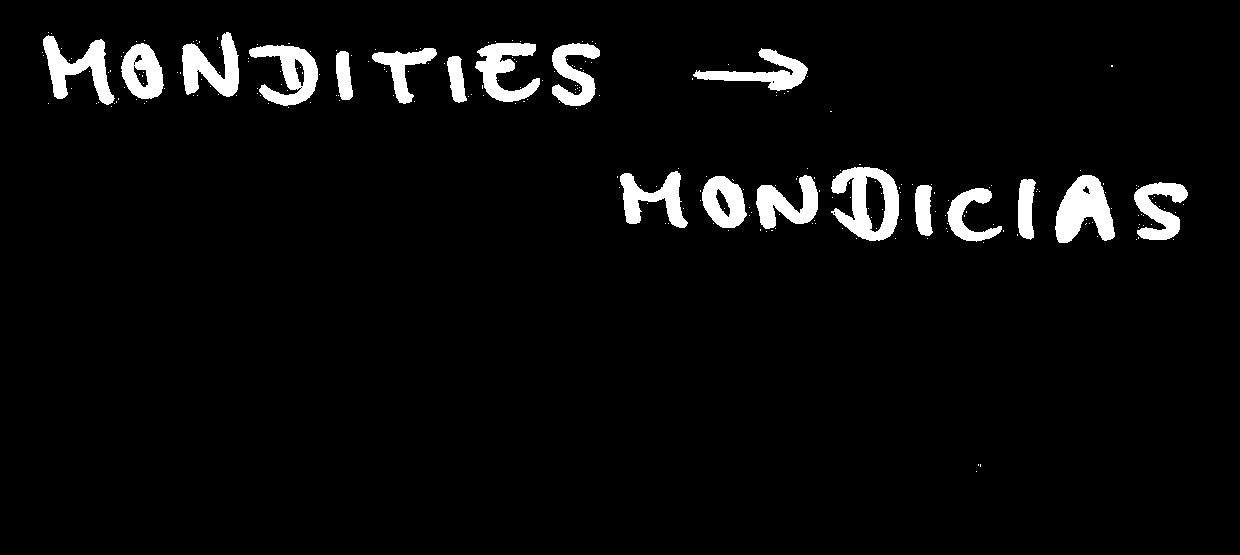 MONDITIES →
MONDICIAS